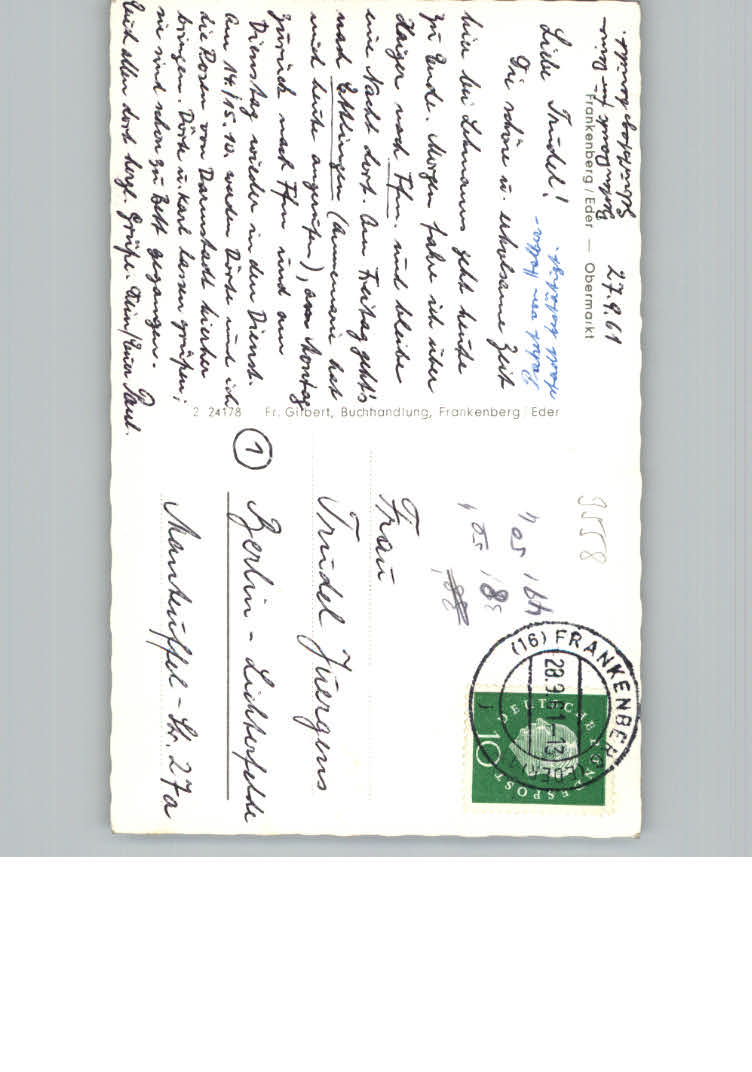 Frankenberg / Eder — Obermarkt
27.9.61
Liebe Trudel!
Die schöne u. erholsame Zeit
hier bei Lehmanns geht heute
zu Ende. Morgen fahre ich über
Haiger nach Ffm. und bleibe
eine Nacht dort. Am Freitag geht's
nach Ettlingen (Annemarie hat
mich heute angerufen), am Montag
zurück nach Ffm und am
Dienstag wieder in den Dienst.
Am 14./15.10. werden Dörte und ich
die Rosen von Darmstadt hierher
bringen. Dörte u. Karl lassen grüßen;
sie sind schon zu Bett gegangen.
Euch allen dort herzl. Grüße. Dein/Euer Paul.
2 24178 Fr. Gilbert, Buchhandlung, Frankenberg / Eder
9558
(16) FRANKENBERG (EDER)
28.9.61-13
DEUTSCHE BUNDESPOST
10
Frau
Trudel Juergens
1 Berlin - Lichterfelde
Manteuffel - Str. 27a